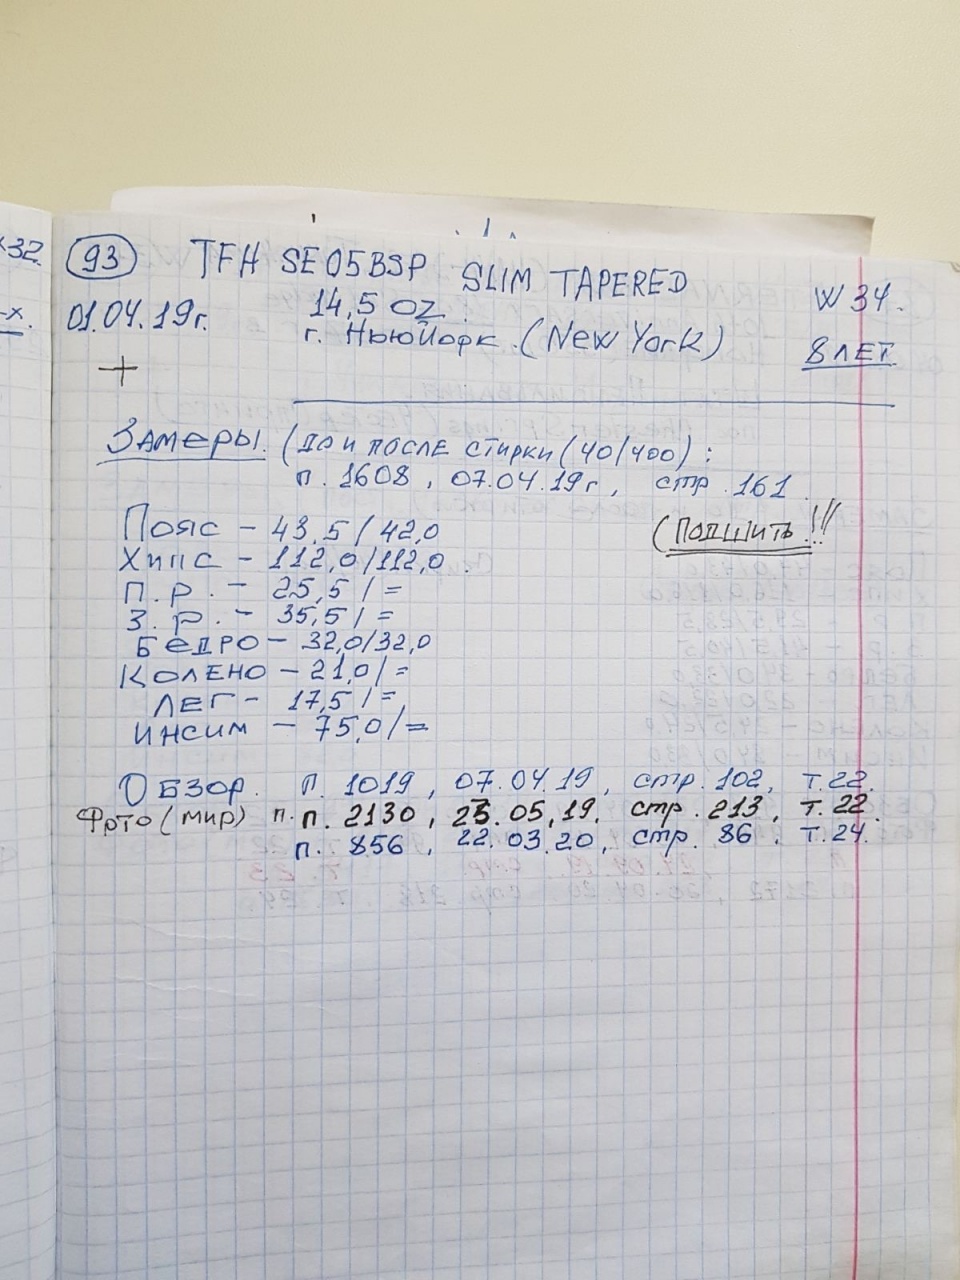 32.
-х.
93 TFH SE05BSP SLIM TAPERED W 34.
01.04.19г. 14,5 OZ.
г. НьюЙорк. (New York) 8 ЛЕТ
+
Замеры. (до и после стирки (40/400) :
п. 1608, 07.04.19г, стр. 161.
(Подшить!!!
Пояс - 43,5 / 42,0
Хипс - 112,0/112,0.
П.Р. - 25,5 / =
З.Р. - 35,5 / =
БЕДРО - 32,0/32,0
КОЛЕНО - 21,0 / =
ЛЕГ - 17,5 / =
ИНСИМ - 75,0 / =
Обзор. п. 1019, 07.04.19, стр. 102, т.22.
Фото (мир) п. п. 2130, 23.05,19. стр. 213, т.22.
п. 856, 22.03.20, стр. 86. т.24.